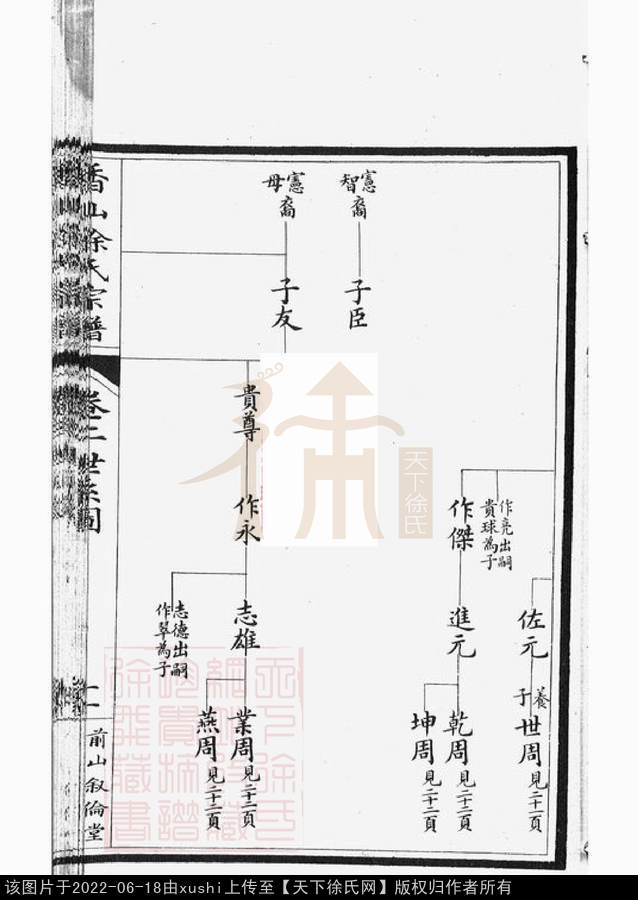 憲裔
智
子臣
憲裔
母
子友
養
子
佐元
世周
見二十二頁
作亮出嗣
貴球為子
作傑
進元
乾周
見二十二頁
坤周
見二十二頁
貴尊
作永
志雄
業周
見二十二頁
燕周
見二十二頁
志德出嗣
作翠為子
香山徐氏宗譜
卷二世系圖
前山敘倫堂
天下徐氏
该图片于2022-06-18由xushi上传至【天下徐氏网】版权归作者所有